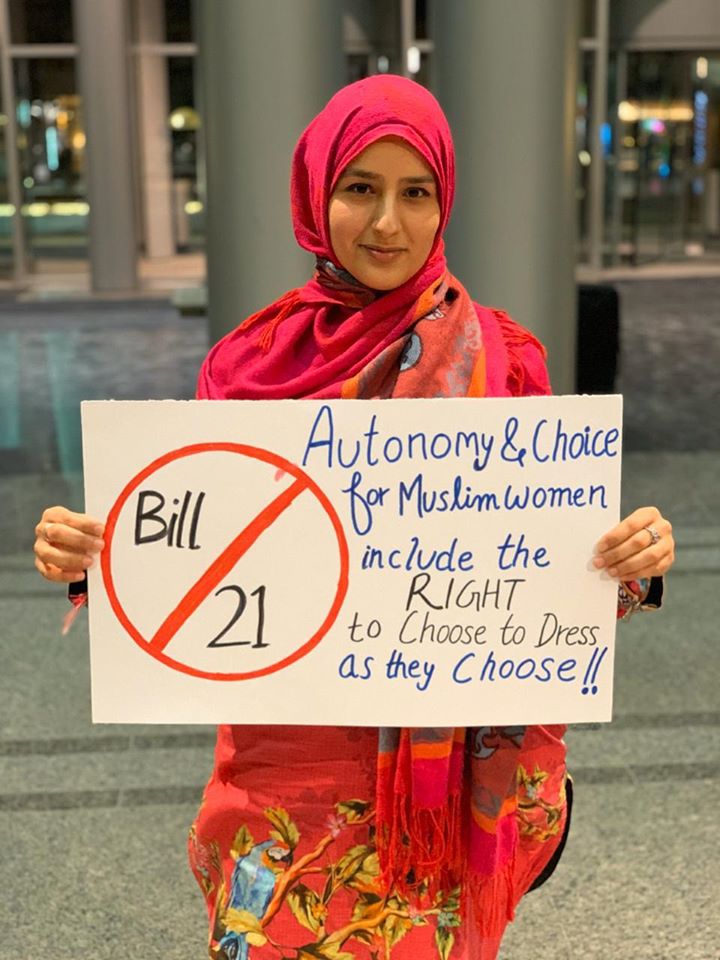 Bill
21
Autonomy & Choice
for Muslim women
include the
RIGHT
to Choose to Dress
as they Choose!!